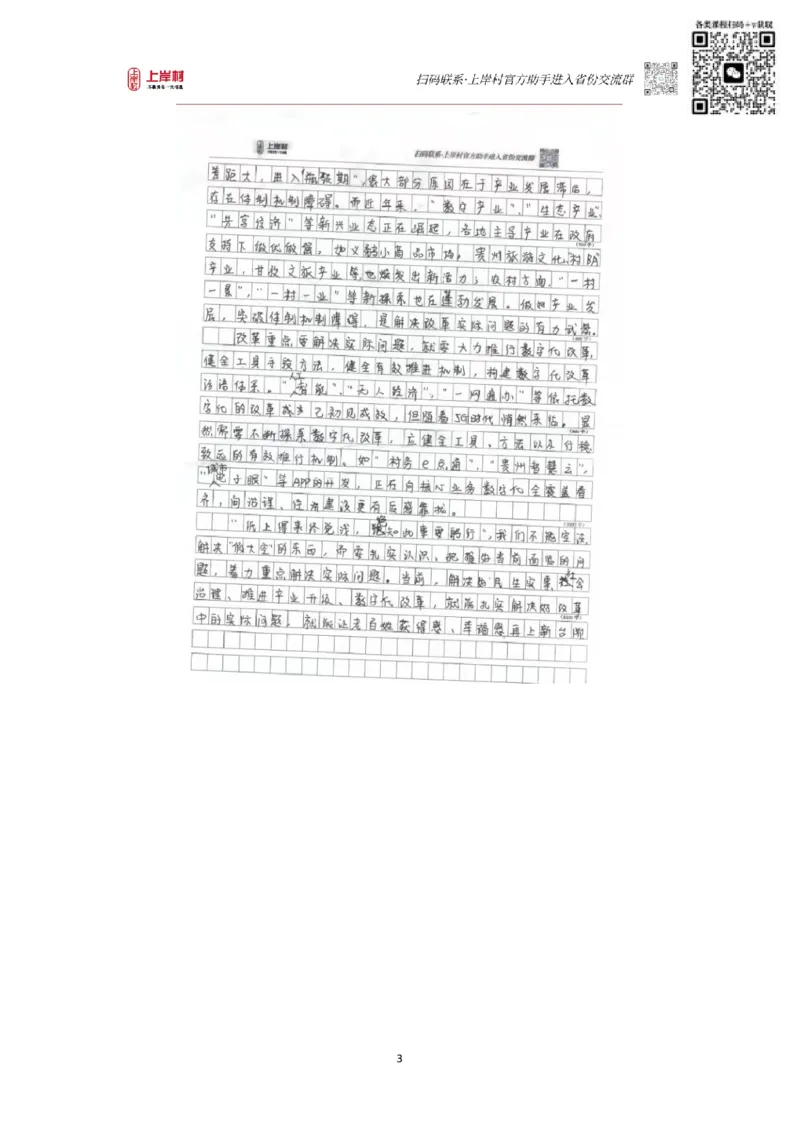 各类课程扫码+v获取
上岸村
扫码联系·上岸村官方助手进入省份交流群
上岸村
扫码联系·上岸村官方助手进入省份交流群
差距大,进入“瓶颈期”,很大部分原因在于产业发展滞后,
存在体制机制障碍。而近年来,“数字产业”、“生态产业”、
“共享经济”等新兴业态正在崛起,各地主导产业在政府
支持下做优做富,如义乌小商品市场。贵州旅游文化、村BA
产业,甘孜文旅产业等,也焕发出新活力;农村方面,“一村
一景”,“一村一业”等新探索也在蓬勃发展。做好产业发
展,突破体制机制障碍,是解决改革实际问题的有力武器。
改革重点要解决实际问题,就要大力推行数字化改革,
健全工具手段方法,健全有效推进机制,构建数字化改革
话语体系。“人工智能”、“无人经济”、“一网通办”等依托数
字化的改革成果已初见成效,但随着5G时代悄然来临,显
然需要不断探索数字化改革,应健全工具、方法以及行稳
致远的有效推行机制。如“村务e点通”、“贵州智慧云”,
“城市电子眼”等APP的开发,正在向核心业务数字化全覆盖看
齐,向治理、经济建设更有后盾靠拢。
“纸上得来终觉浅,绝知此事要躬行”,我们不能空谈
解决“假大空”的东西,而要扎实认识、把握好当前面临的问
题,着力重点解决实际问题。当前,解决好民生实事、社会
治理、推进产业升级、数字化改革,就能扎实解决好改革
中的实际问题,就能让老百姓获得感、幸福感再上新台阶
3